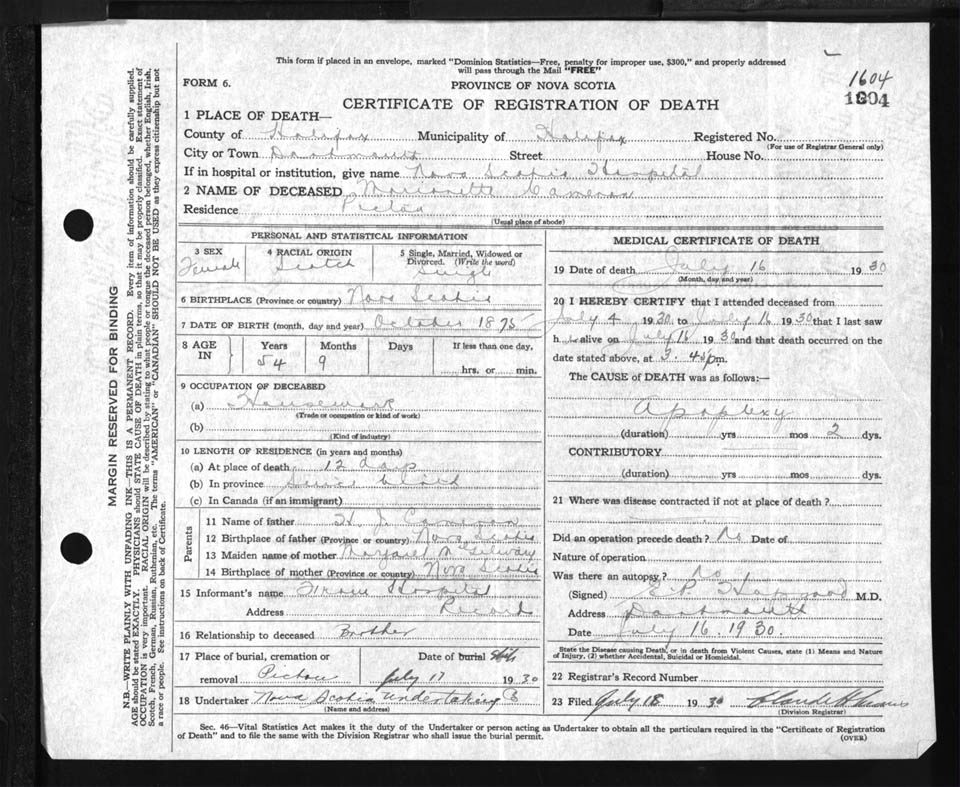 This form if placed in an envelope, marked "Dominion Statistics—Free, penalty for improper use, $300," and properly addressed
will pass through the Mail "FREE"
FORM 6.
PROVINCE OF NOVA SCOTIA
1604
CERTIFICATE OF REGISTRATION OF DEATH
1 PLACE OF DEATH—
County of Halifax Municipality of Halifax Registered No.
(For use of Registrar General only)
City or Town Dartmouth Street House No.
If in hospital or institution, give name Nova Scotia Hospital
2 NAME OF DECEASED Cameron
Residence Pictou
(Usual place of abode)
PERSONAL AND STATISTICAL INFORMATION
3 SEX Female
4 RACIAL ORIGIN Scotch
5 Single, Married, Widowed or Divorced. (Write the word) Single
6 BIRTHPLACE (Province or country) Nova Scotia
7 DATE OF BIRTH (month, day and year) October 1875
8 AGE IN Years Months Days If less than one day,
54 9 hrs. or min.
9 OCCUPATION OF DECEASED
(a) Housework
(Trade or occupation or kind of work)
(b)
(Kind of industry)
10 LENGTH OF RESIDENCE (in years and months)
(a) At place of death 12 days
(b) In province since
(c) In Canada (if an immigrant)
Parents
11 Name of father H. J. Cameron
12 Birthplace of father (Province or country) Nova Scotia
13 Maiden name of mother Margaret
14 Birthplace of mother (Province or country) Nova Scotia
15 Informant's name From Hospital
Address Records
16 Relationship to deceased Brother
17 Place of burial, cremation or Date of burial
removal Pictou July 17 1930
18 Undertaker Nova Scotia Undertaking Co
(Name and address)
MEDICAL CERTIFICATE OF DEATH
19 Date of death July 16 1930
(Month, day and year)
20 I HEREBY CERTIFY that I attended deceased from
July 4 1930 to July 16 1930 that I last saw
h er alive on July 16 1930 and that death occurred on the
date stated above, at 3.45 p.m.
The CAUSE of DEATH was as follows:—
Apoplexy
(duration) yrs mos 2 dys.
CONTRIBUTORY
(duration) yrs. mos dys.
21 Where was disease contracted if not at place of death?
Did an operation precede death? No Date of
Nature of operation
Was there an autopsy? No
(Signed) M.D.
Address Dartmouth
Date July 16. 1930.
State the Disease causing Death, or in death from Violent Causes, state (1) Means and Nature
of Injury, (2) whether Accidental, Suicidal or Homicidal.
22 Registrar's Record Number
23 Filed July 18 1930
(Division Registrar)
Sec. 46—Vital Statistics Act makes it the duty of the Undertaker or person acting as Undertaker to obtain all the particulars required in the "Certificate of Registration
of Death" and to file the same with the Division Registrar who shall issue the burial permit.
(OVER)
MARGIN RESERVED FOR BINDING
N.B.—WRITE PLAINLY WITH UNFADING INK—THIS IS A PERMANENT RECORD. Every item of information should be carefully supplied.
AGE should be stated EXACTLY. PHYSICIANS should STATE CAUSE OF DEATH in plain terms, so that it may be properly classified. Exact statement of
OCCUPATION is very important. RACIAL ORIGIN will be described by stating to what people or tongue the deceased person belonged, whether English, Irish,
Scotch, French, German, Russian, Ruthenian, etc. The terms "AMERICAN" or "CANADIAN" SHOULD NOT BE USED as they express citizenship but not
a race or people. See instructions on back of Certificate.